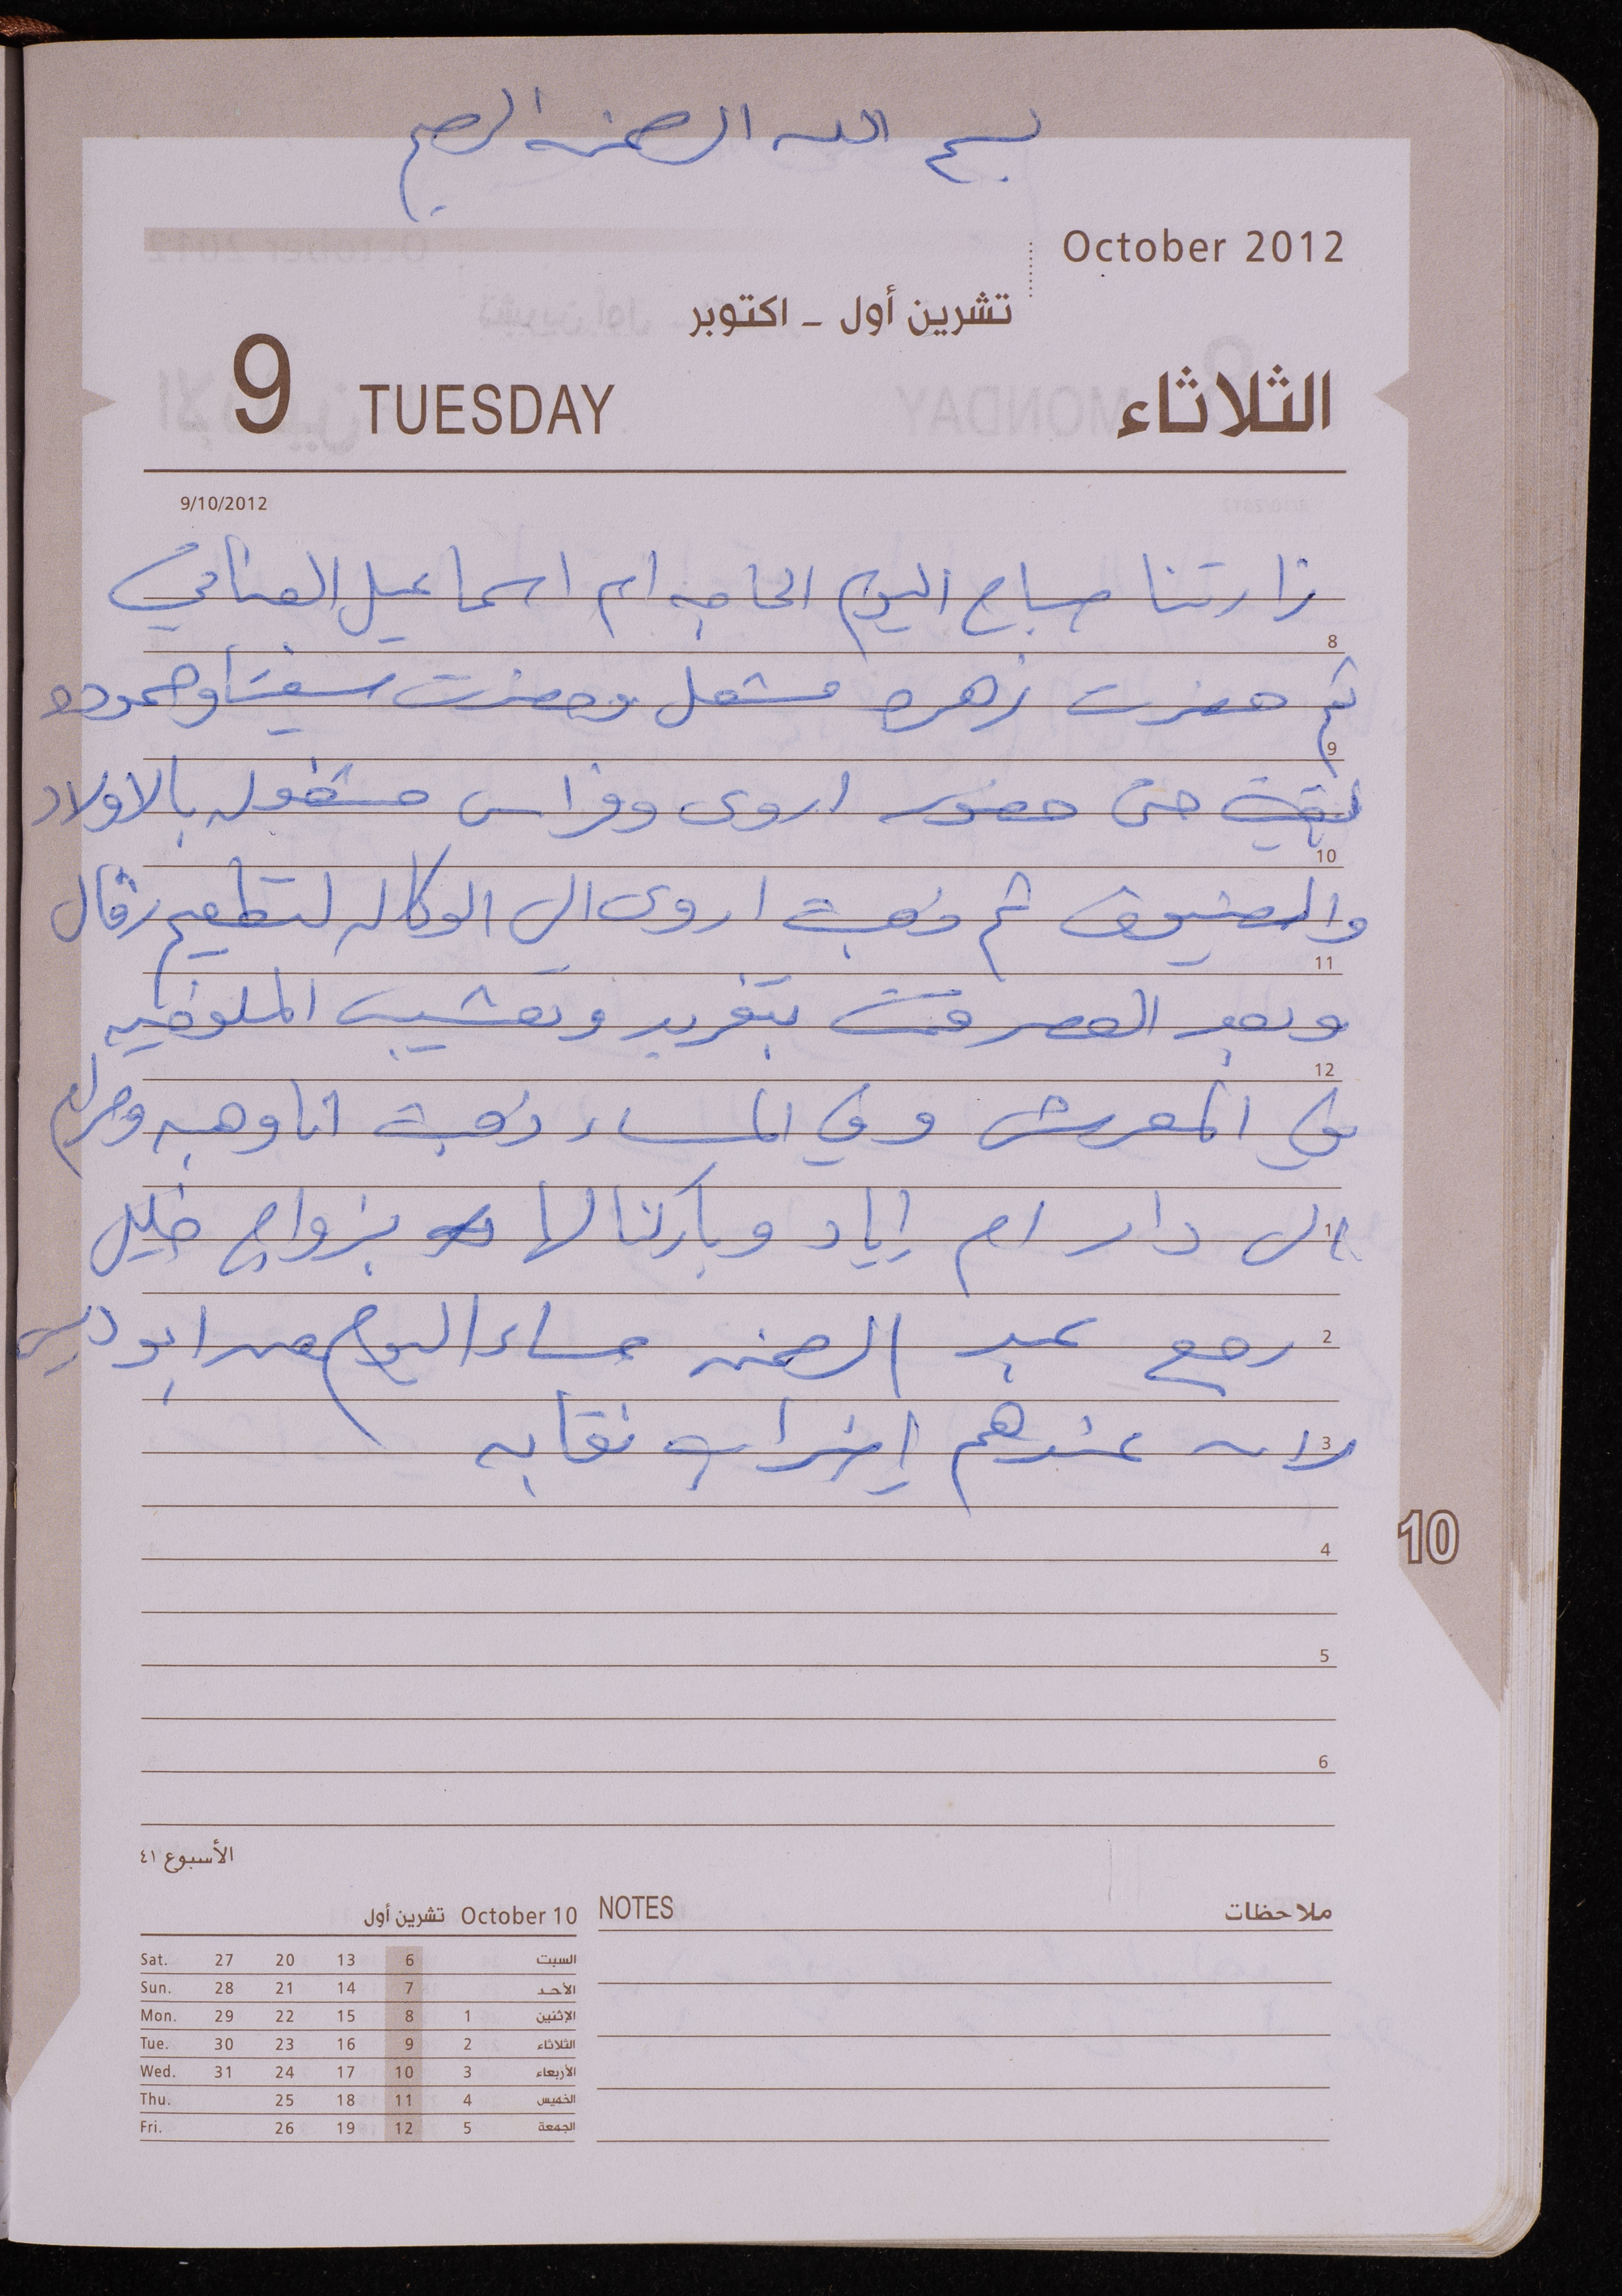 بسم الله الرحمن الرحيم
October 2012
تشرين أول - اكتوبر
9 TUESDAY الثلاثاء
9/10/2012
زارتنا صباح اليوم الحاجه ام اسماعيل العناتي
8
ثم حضرت زهره مشعل وحضرت وحموده
9
بقيت حتى حضور اروى وفراس مشغوله بالاولاد
10
والضيوف ثم ذهبت اروى الى الوكاله لتطعيم نزال
11
وبعد العصر قمت بتفريد وتعشيب الملوخيه
12
في المعرش وفي المساء ذهبت انا وهبه ومرام
1
الى دار ام إياد وباركنا لها بزواج خليل
2
رجع عبد الرحمن مساء اليوم من ابو ديس
3
لان عندهم إضراب نقابه
4
10
5
6
الأسبوع ٤١
October 10 تشرين أول
Sat. 27 20 13 6 السبت
Sun. 28 21 14 7 الأحد
Mon. 29 22 15 8 1 الإثنين
Tue. 30 23 16 9 2 الثلاثاء
Wed. 31 24 17 10 3 الأربعاء
Thu. 25 18 11 4 الخميس
Fri. 26 19 12 5 الجمعة
NOTES ملاحظات